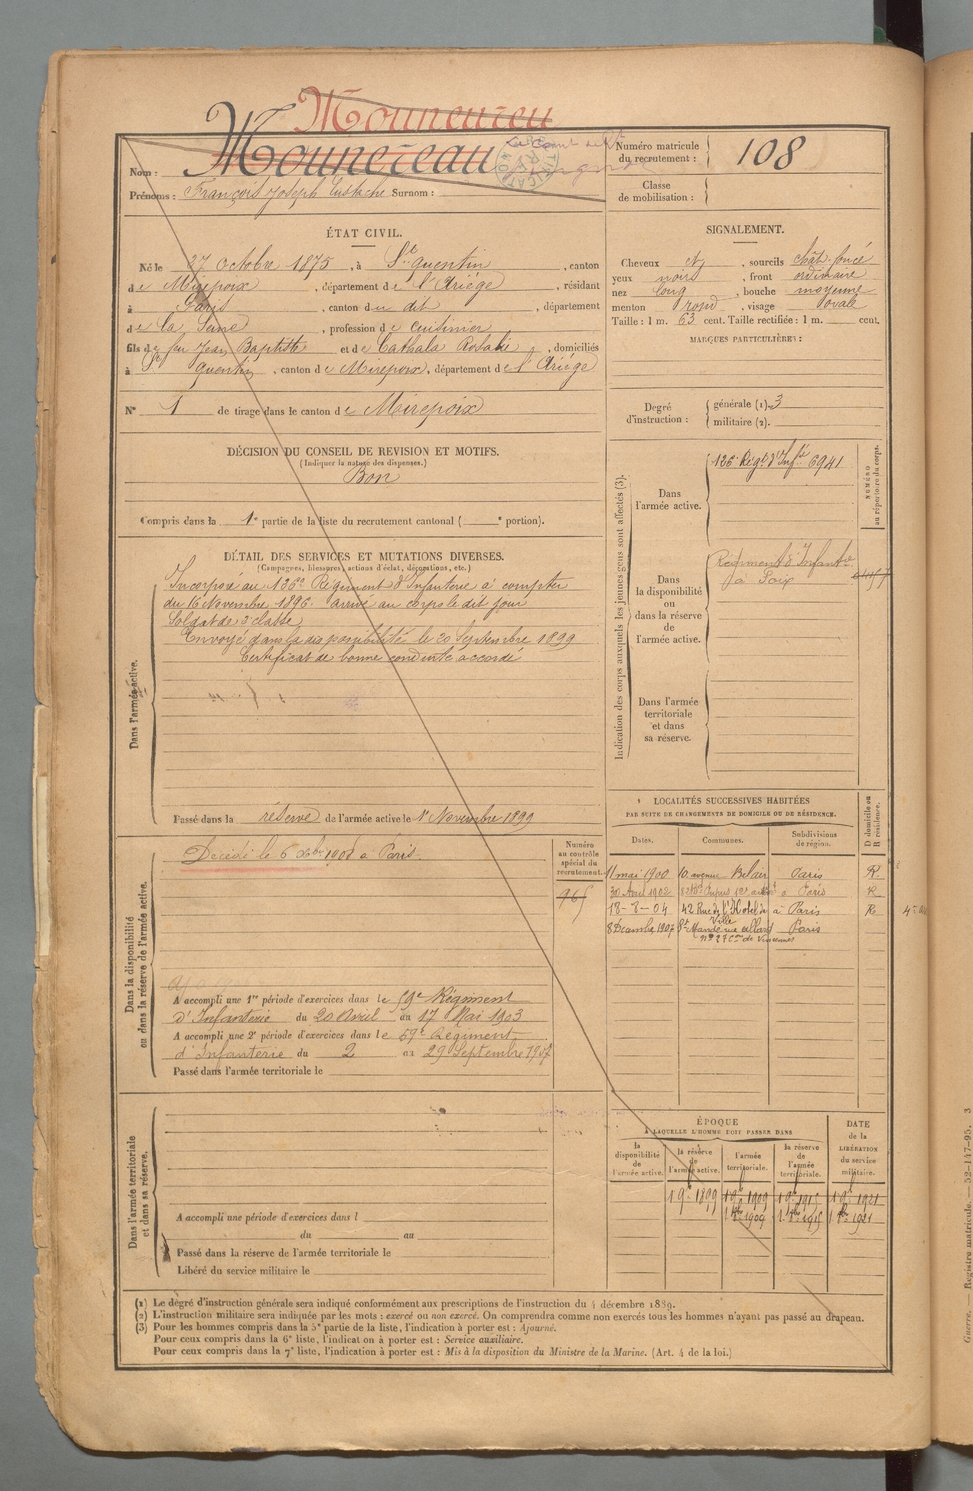 Mounereau
Nom : Mounereau
Prénoms : François Joseph Eustache Surnom :
Numéro matricule
du recrutement : 108
Classe
de mobilisation :
ÉTAT CIVIL.
Né le 27 octobre 1875, à St quentin, canton
de Mirepoix, département de l'Ariège, résidant
à Paris, canton du dit, département
de la Seine, profession de cuisinier
fils de feu Jean Baptiste et de Cathala Rosalie, domiciliés
à St quentin, canton de Mirepoix, département de l'Ariège
N° 1 de tirage dans le canton de Mirepoix
SIGNALEMENT.
Cheveux , sourcils chât. foncé
yeux noirs, front ordinaire
nez long, bouche moyenne
menton rond, visage ovale
Taille : 1 m. 63 cent. Taille rectifiée : 1 m. cent.
MARQUES PARTICULIÈRES :
Degré
d'instruction :
générale (1). 3
militaire (2).
DÉCISION DU CONSEIL DE REVISION ET MOTIFS.
(Indiquer la nature des dispenses.)
Bon
Compris dans la 1e partie de la liste du recrutement cantonal ( e portion).
DÉTAIL DES SERVICES ET MUTATIONS DIVERSES.
(Campagnes, blessures, actions d'éclat, décorations, etc.)
Dans l'armée active.
Incorporé au 126e Régiment d'Infanterie à compter
du 16 Novembre 1896. arrivé au corps le dit jour
Soldat de 2e classe
Envoyé dans la disponibilité le 20 Septembre 1899
Certificat de bonne conduite accordé
Passé dans la réserve de l'armée active le 1r Novembre 1899
Indication des corps auxquels les jeunes gens sont affectés (3).
NUMÉRO
au répertoire du corps.
Dans
l'armée active.
126e Régt d'Infie 6941
Dans
la disponibilité
ou
dans la réserve
de
l'armée active.
Régiment d'Infante
à
Dans l'armée
territoriale
et dans
sa réserve.
Dans la disponibilité
ou dans la réserve de l'armée active.
Décédé le 6 1908 à Paris.
Numéro
au contrôle
spécial du
recrutement.
965
A accompli une 1re période d'exercices dans le Régiment
d'Infanterie du 20 Avril au 17 Mai 1903
A accompli une 2e période d'exercices dans le 59e Régiment
d'Infanterie du 2 au 29 Septembre 1907
Passé dans l'armée territoriale le
LOCALITÉS SUCCESSIVES HABITÉES
PAR SUITE DE CHANGEMENTS DE DOMICILE OU DE RÉSIDENCE.
Dates. Communes. Subdivisions
de région.
D domicile ou
R résidence.
11 mai 1900 10 avenue Belair Paris R.
30 Avril 1902 Paris R
18-8-04 42 Rue de l'Hôtel de Ville à Paris R
8 Décembre 1907 St Mandé rue Allard Paris
Con de Vincennes
Dans l'armée territoriale
et dans sa réserve.
A accompli une période d'exercices dans l
du au
Passé dans la réserve de l'armée territoriale le
Libéré du service militaire le
ÉPOQUE
À LAQUELLE L'HOMME DOIT PASSER DANS
DATE
de la
LIBÉRATION
du service
militaire.
la
disponibilité
de
l'armée active.
la réserve
de
l'armée active.
l'armée
territoriale.
la réserve
de
l'armée
territoriale.
1 9e 1899 1 9e 1909 1 9e 1915 1 9e 1921
1909 1915 1921
(1) Le degré d'instruction générale sera indiqué conformément aux prescriptions de l'instruction du 4 décembre 1889.
(2) L'instruction militaire sera indiquée par les mots : exercé ou non exercé. On comprendra comme non exercés tous les hommes n'ayant pas passé au drapeau.
(3) Pour les hommes compris dans la 5e partie de la liste, l'indication à porter est : Ajourné.
Pour ceux compris dans la 6e liste, l'indication à porter est : Service auxiliaire.
Pour ceux compris dans la 7e liste, l'indication à porter est : Mis à la disposition du Ministre de la Marine. (Art. 4 de la loi.)
Guerre. — Registre matricule. — 52-147-95. 3